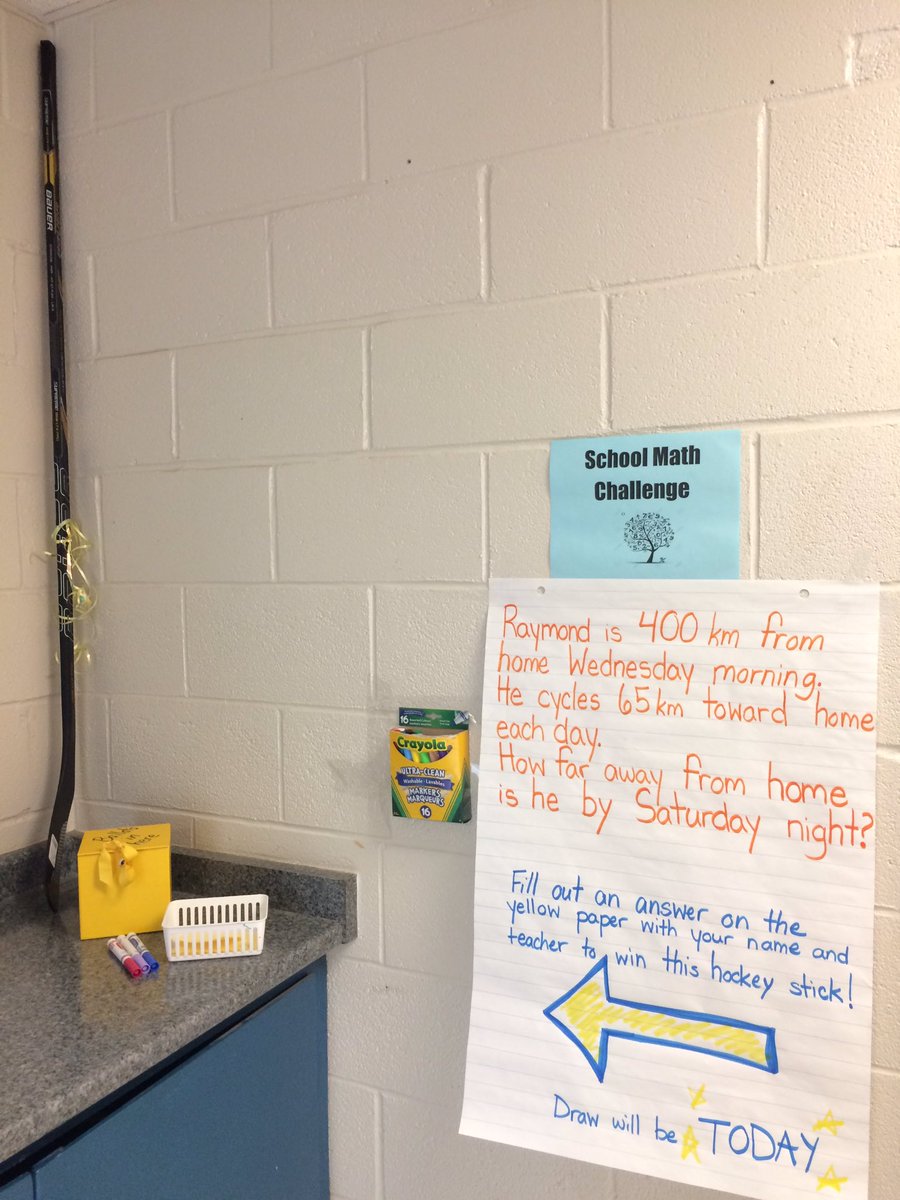 BAUER
School Math
Challenge
Raymond is 400 km from
home Wednesday morning.
He cycles 65km toward home
each day.
How far away from home
is he by Saturday night?
16
Crayola
ULTRA-CLEAN
Washable · Lavables
MARKERS
MARQUEURS
16
Fill out an answer on the
yellow paper with your name and
teacher to win this hockey stick!
Draw will be TODAY